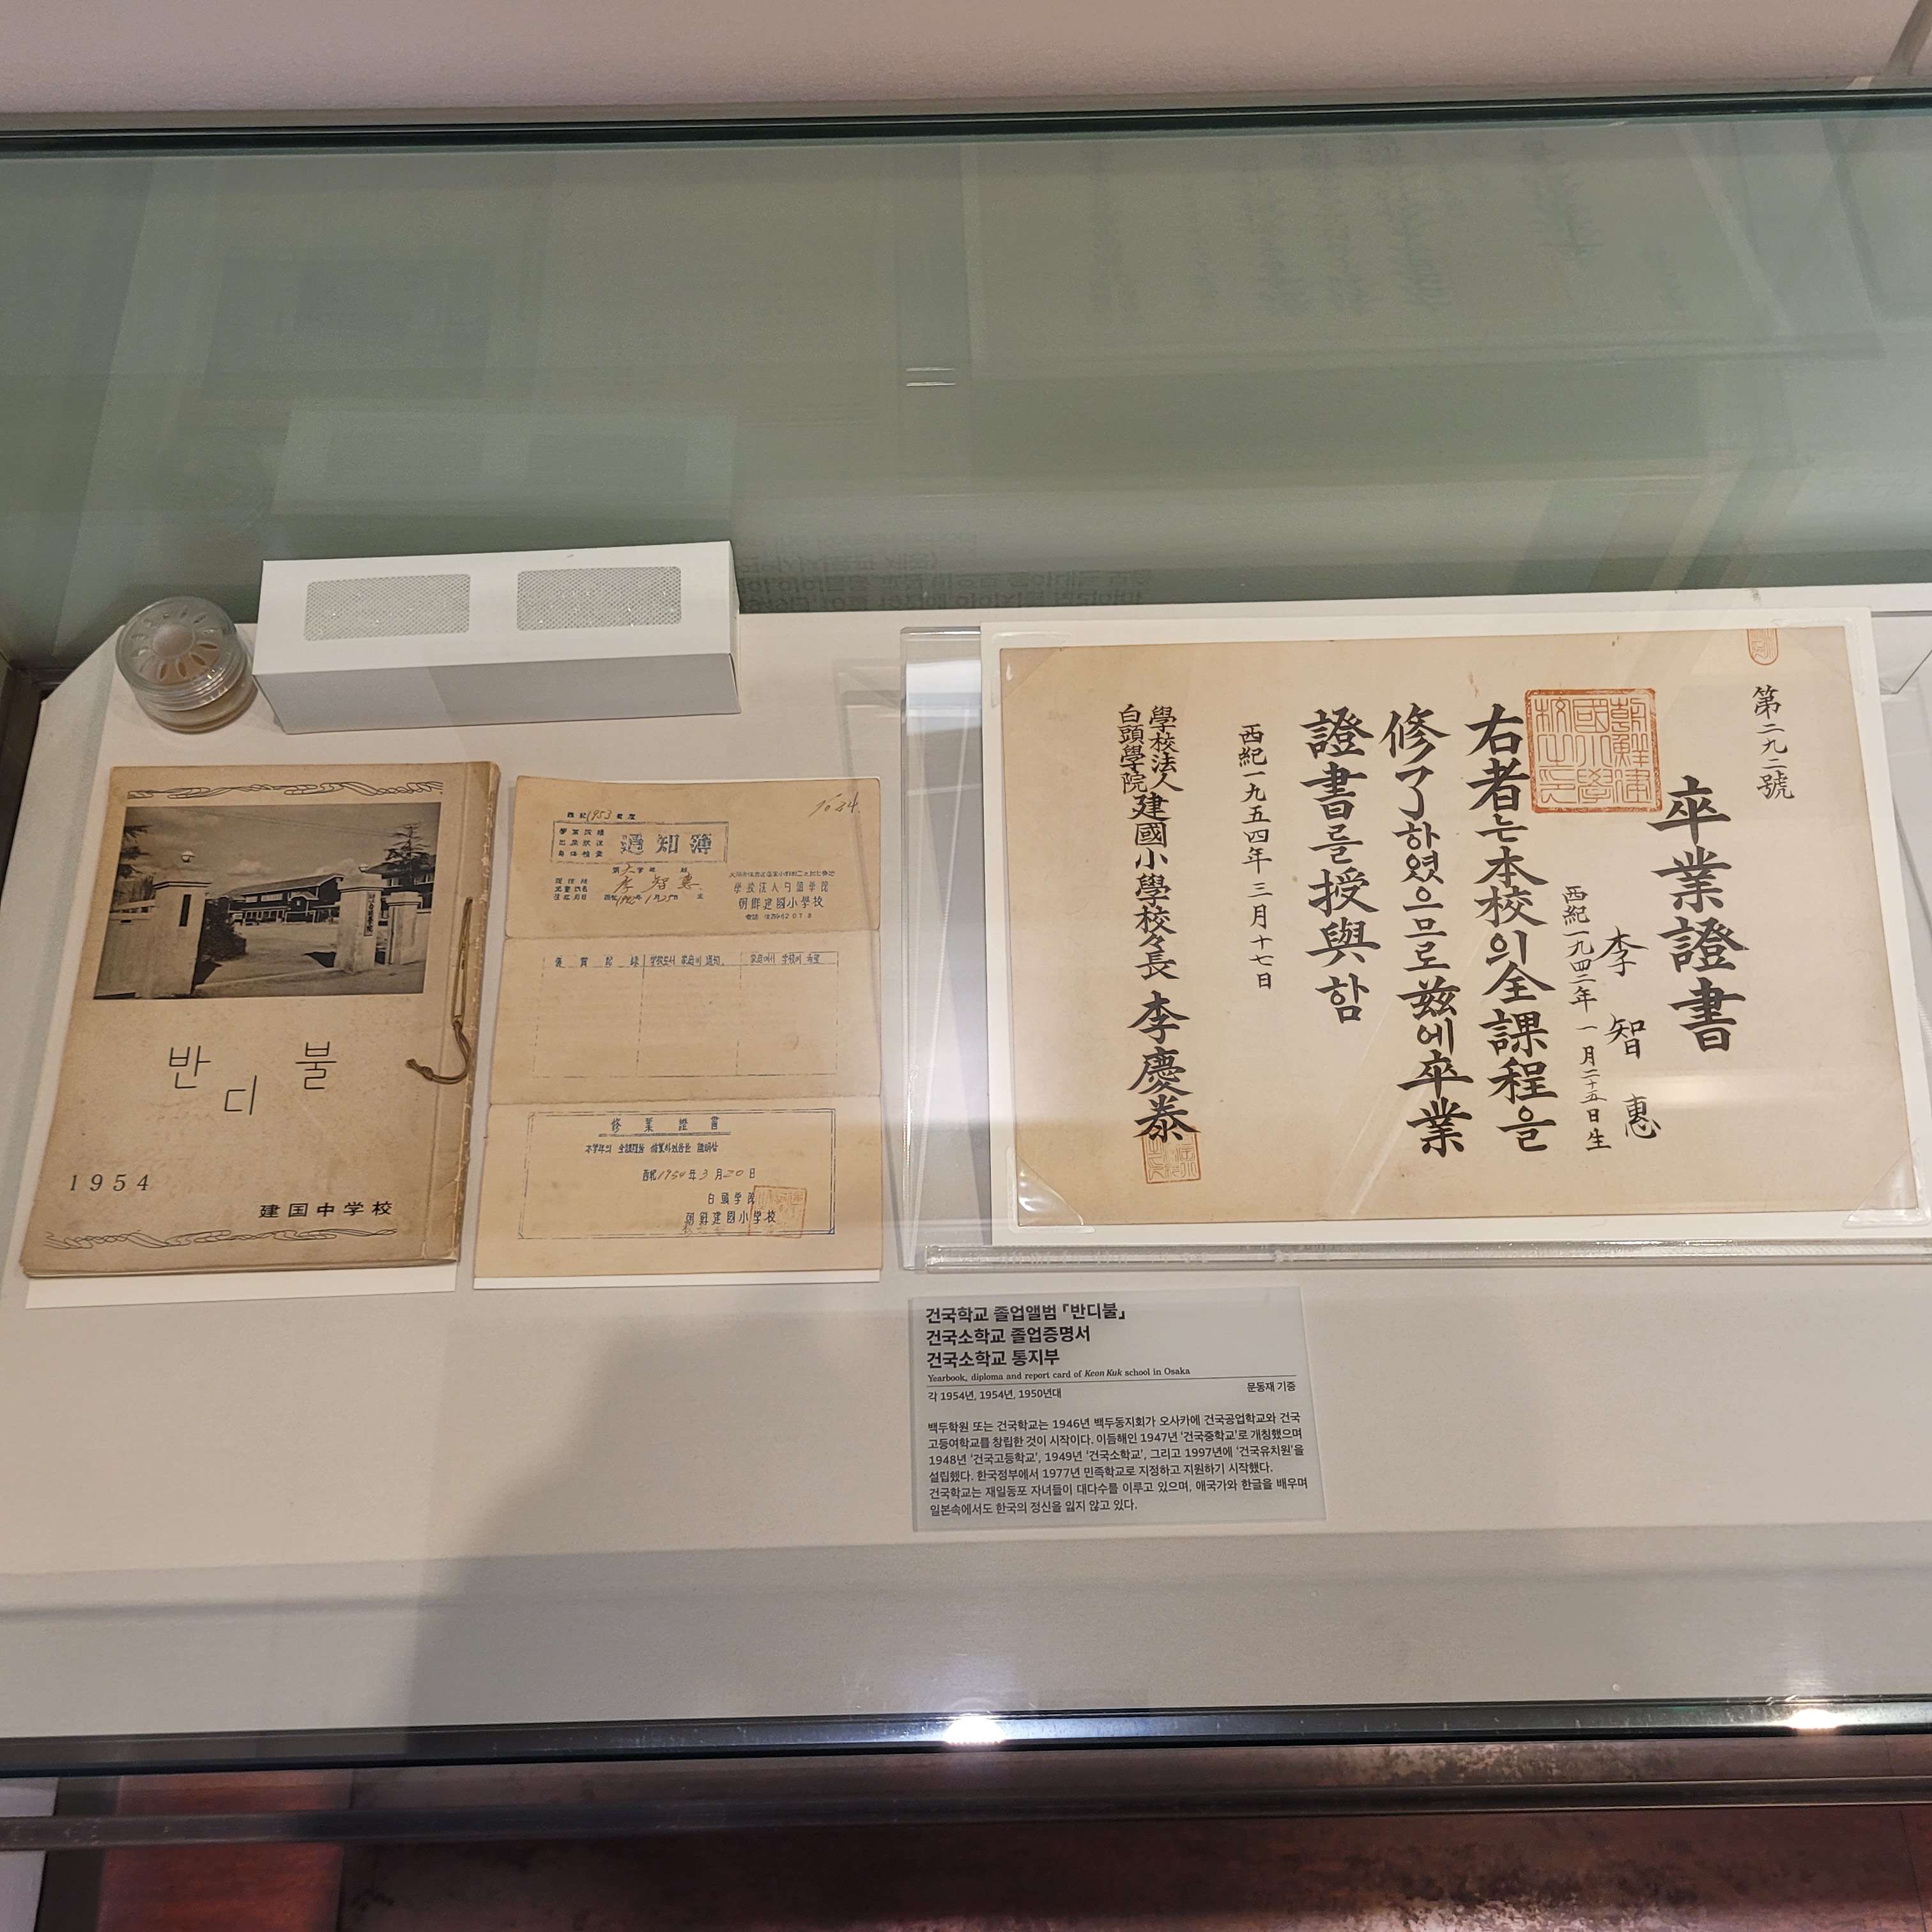 반디불
1954
建国中学校
西紀1953年度
學業成績
出席狀況
身体檢查
通知簿
李智惠
學校法人白頭學院
朝鮮建國小學校
學校로서 家庭에 通知
家庭에서 學校에 希望
修業證書
西紀1954年3月20日
白頭学院
朝鮮建國小学校
第二九二號
卒業證書
李智惠
西紀一九四二年一月二十五日生
右者는本校의全課程을
修了하였으므로玆에卒業
證書를授與함
西紀一九五四年三月十七日
學校法人
白頭學院
建國小學校々長 李慶泰
건국학교 졸업앨범 「반디불」
건국소학교 졸업증명서
건국소학교 통지부
Yearbook, diploma and report card of Keon Kuk school in Osaka
각 1954년, 1954년, 1950년대
문동재 기증
백두학원 또는 건국학교는 1946년 백두동지회가 오사카에 건국공업학교와 건국
고등여학교를 창립한 것이 시작이다. 이듬해인 1947년 '건국중학교'로 개칭했으며
1948년 '건국고등학교', 1949년 '건국소학교', 그리고 1997년에 '건국유치원'을
설립했다. 한국정부에서 1977년 민족학교로 지정하고 지원하기 시작했다.
건국학교는 재일동포 자녀들이 대다수를 이루고 있으며, 애국가와 한글을 배우며
일본속에서도 한국의 정신을 잃지 않고 있다.